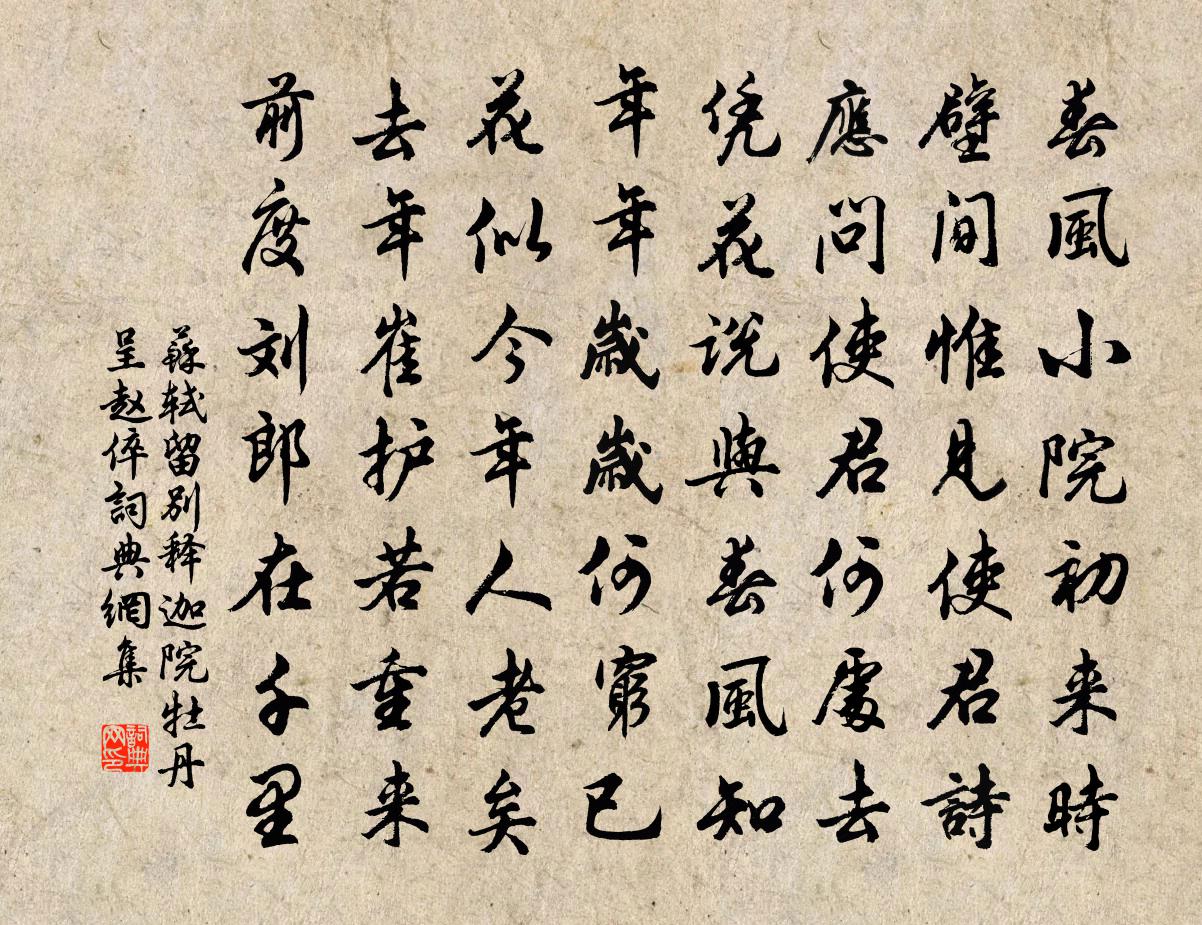 春風小院初来時
壁間惟見使君詩
應問使君何處去
凭花説與春風知
年年歲歲何窮已
花似今年人老矣
去年崔护若重来
前度刘郎在千里
蘇轼留别释迦院牡丹
呈赵倅詞典網集
詞典网印